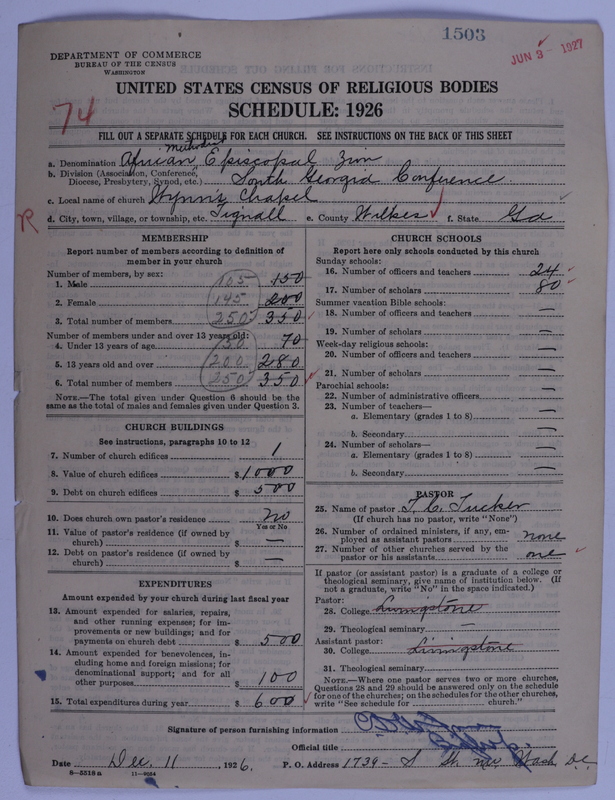 1503
JUN 3 - 1927
DEPARTMENT OF COMMERCE
BUREAU OF THE CENSUS
WASHINGTON
UNITED STATES CENSUS OF RELIGIOUS BODIES
SCHEDULE: 1926
74
FILL OUT A SEPARATE SCHEDULE FOR EACH CHURCH. SEE INSTRUCTIONS ON THE BACK OF THIS SHEET
Methodist
a. Denomination African Episcopal Zion
b. Division (Association, Conference, Diocese, Presbytery, Synod, etc.) South Georgia Conference
c. Local name of church Wynn's Chapel
R
d. City, town, village, or township, etc. Tignall e. County Wilkes f. State Ga
MEMBERSHIP
Report number of members according to definition of
member in your church
Number of members, by sex:
1. Male 105 150
2. Female 145 200
3. Total number of members 250 350
Number of members under and over 13 years old:
4. Under 13 years of age 70
5. 13 years old and over 200 280
6. Total number of members 250 350
NOTE.—The total given under Question 6 should be
same as the total of males and females given under Question 3.
CHURCH BUILDINGS
See instructions, paragraphs 10 to 12
7. Number of church edifices 1
8. Value of church edifices $ 1000
9. Debt on church edifices $ 500
10. Does church own pastor's residence No
Yes or No
11. Value of pastor's residence (if owned by
church) $ —
12. Debt on pastor's residence (if owned by
church) $ —
EXPENDITURES
Amount expended by your church during last fiscal year
13. Amount expended for salaries, repairs,
and other running expenses; for im-
provements or new buildings; and for
payments on church debt $ 500
14. Amount expended for benevolences, in-
cluding home and foreign missions; for
denominational support; and for all
other purposes $ 100
15. Total expenditures during year $ 600
CHURCH SCHOOLS
Report here only schools conducted by this church
Sunday schools:
16. Number of officers and teachers 24
17. Number of scholars 80
Summer vacation Bible schools:
18. Number of officers and teachers —
19. Number of scholars —
Week-day religious schools:
20. Number of officers and teachers —
21. Number of scholars —
Parochial schools:
22. Number of administrative officers —
23. Number of teachers—
a. Elementary (grades 1 to 8) —
b. Secondary —
24. Number of scholars—
a. Elementary (grades 1 to 8) —
b. Secondary —
PASTOR
25. Name of pastor T. C. Tucker
(If church has no pastor, write "None")
26. Number of ordained ministers, if any, em-
ployed as assistant pastors none
27. Number of other churches served by the
pastor or his assistants one
If pastor (or assistant pastor) is a graduate of a college or
theological seminary, give name of institution below. (If
not a graduate, write "No" in the space indicated.)
Pastor:
28. College Livingstone
29. Theological seminary —
Assistant pastor:
30. College Livingstone
31. Theological seminary
NOTE.—Where one pastor serves two or more churches,
Questions 28 and 29 should be answered only on the schedule
for one of the churches; on the schedules for the other churches,
write "See schedule for church."
Signature of person furnishing information
Official title
Date Dec. 11, 1926. P. O. Address 1739 - S St. nw Wash D.C.
8—5518a 11—9054